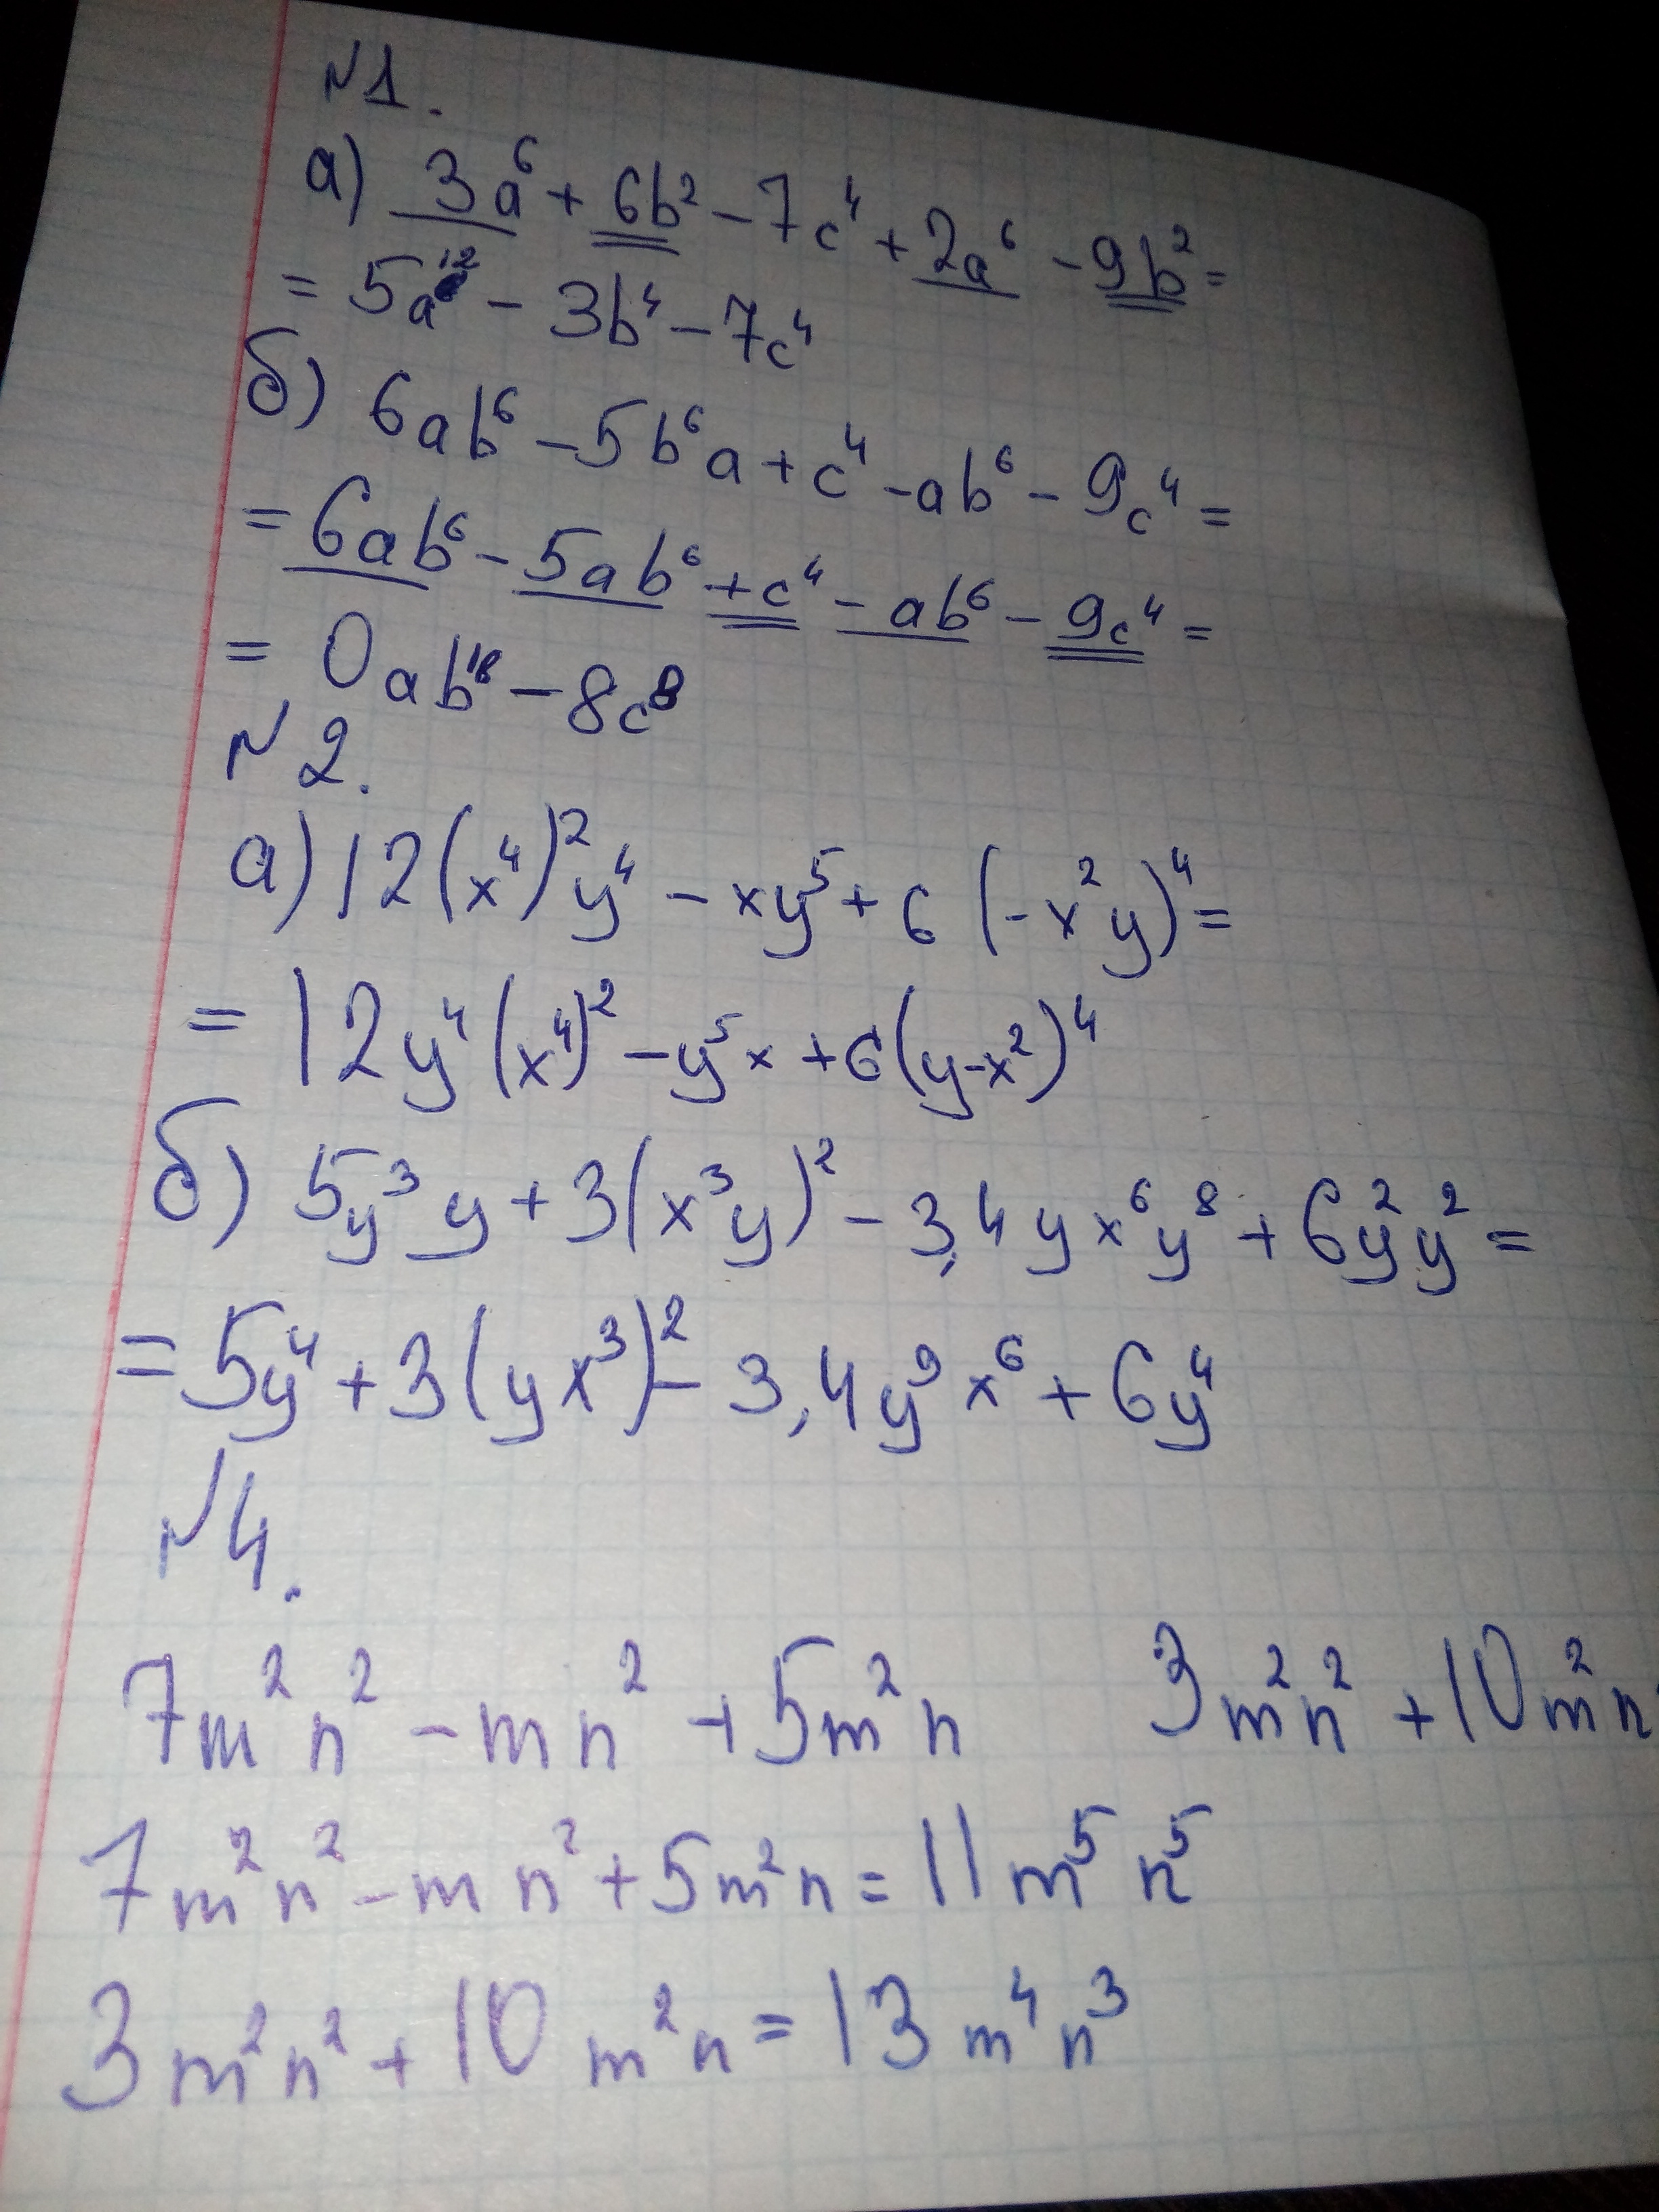 №1.
а) 3a⁶ + 6b² − 7c⁴ + 2a⁶ − 9b² =
= 5a¹² − 3b⁴ − 7c⁴
б) 6ab⁶ − 5b⁶a + c⁴ − ab⁶ − 9c⁴ =
= 6ab⁶ − 5ab⁶ + c⁴ − ab⁶ − 9c⁴ =
= 0ab¹⁸ − 8c⁸
№2.
а) 12(x⁴)²y⁴ − xy⁵ + 6(−x²y)⁴ =
= 12y⁴(x⁴)² − y⁵x + 6(y−x²)⁴
б) 5y³y + 3(x³y)² − 3,4yx⁶y⁸ + 6y²y² =
= 5y⁴ + 3(yx³)² − 3,4y⁹x⁶ + 6y⁴
№4.
7m²n² − mn² + 5m²n 3m²n² + 10m²n
7m²n² − mn² + 5m²n = 11m⁵n⁵
3m²n² + 10m²n = 13m⁴n³